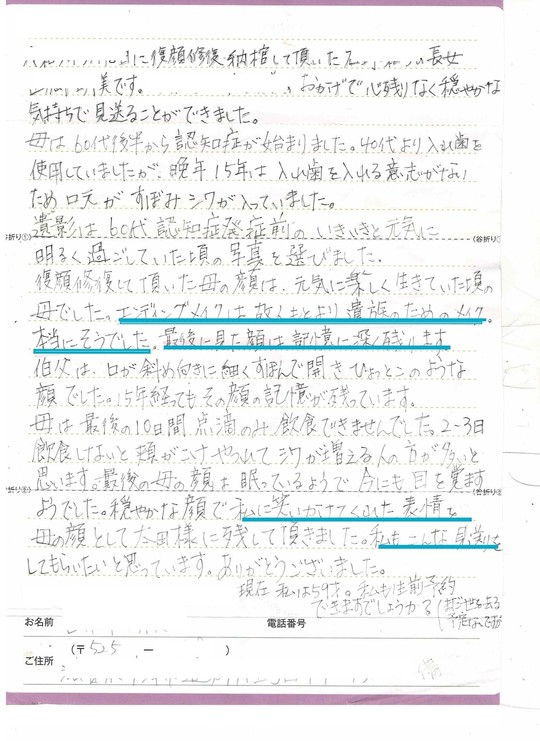 に復顔修復納棺して頂いた 長女
美です。 おかげで心残りなく穏やかな
気持ちで見送ることができました。
母は60代後半から認知症が始まりました。40代より入れ歯を
使用していましたが、晩年15年は入れ歯を入れる意志がない
ため口元がすぼみシワが入っていました。
遺影は60代認知症発症前のいきいきと元気に
明るく過ごしていた頃の写真を選びました。
復顔修復して頂いた母の顔は、元気に楽しく生きていた頃の
母でした。エンディングメイクは故人もとより遺族のためのメイク。
本当にそうでした。最後に見た顔は記憶に深く残ります
伯父は、口が斜め向きに細くすぼんで開きひょっとこのような
顔でした。15年経ってもその顔の記憶が残っています。
母は最後の10日間点滴のみ飲食できませんでした。2-3日
飲食しないと頬がこけやつれてシワが増える人の方が多いと
思います。最後の母の顔は眠っているようで今にも目を覚ます
ようでした。穏やかな顔で私に笑いかけてくれた表情を
母の顔として太田様に残して頂きました。私もこんな見送りを
してもらいたいと思っています。ありがとうございました。
現在私は59才。私も生前予約
できますでしょうか?
お名前 電話番号
(〒525 - )
ご住所